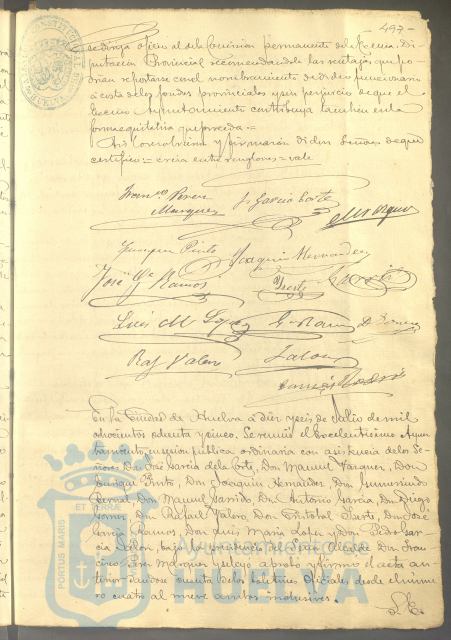 497-
se dirija oficio al de la Comision permanente de la Excma. Di-
putacion Provincial recomendandole las ventajas que po-
drian reportarse con el nombramiento de dicho funcionario
á costa de los fondos provinciales y sin perjuicio de que el
Excmo. Ayuntamiento contribuya tambien en la
forma equitativa que proceda.=
Asi lo acordaron y firmarán dichos Señores de que
certifico:= entre renglones = vale
Franco. Perez
Marquez
J. Garcia Corte
M. Vazquez
Joaquin Hernandez
José Ga. Ramos
Luis M. Lopez
Raf. Valero
En la Ciudad de Huelva á diez y seis de Julio de mil
ochocientos ochenta y cinco. Se reunió el Excelentisimo Ayun-
tamiento en sesion pública ordinaria con asistencia de los Se-
ñores Dn. José Garcia de la Corte, Dn. Manuel Vazquez, Don
Pinto, Dn. Joaquin Hernandez, Don Gumersindo
Bernal, Don Manuel Garrido, Dn. Antonio Garcia, Dn. Diego
Gomez, Dn. Rafael Valero, Don Cristobal Iñesta, Don José
Garcia Ramos, Don Luis Maria Lopez y Dn. Pedro Gar-
cia bajo la presidencia del Señor Alcalde Dn. Fran-
cisco Perez Marquez y se leyó aprobó y firmó el acta an-
terior dandose cuenta de los boletines Oficiales desde el núme-
ro cuatro al nueve ambos inclusives.
PORTUS MARIS ET TERRAE
Ayuntamiento de
HUELVA